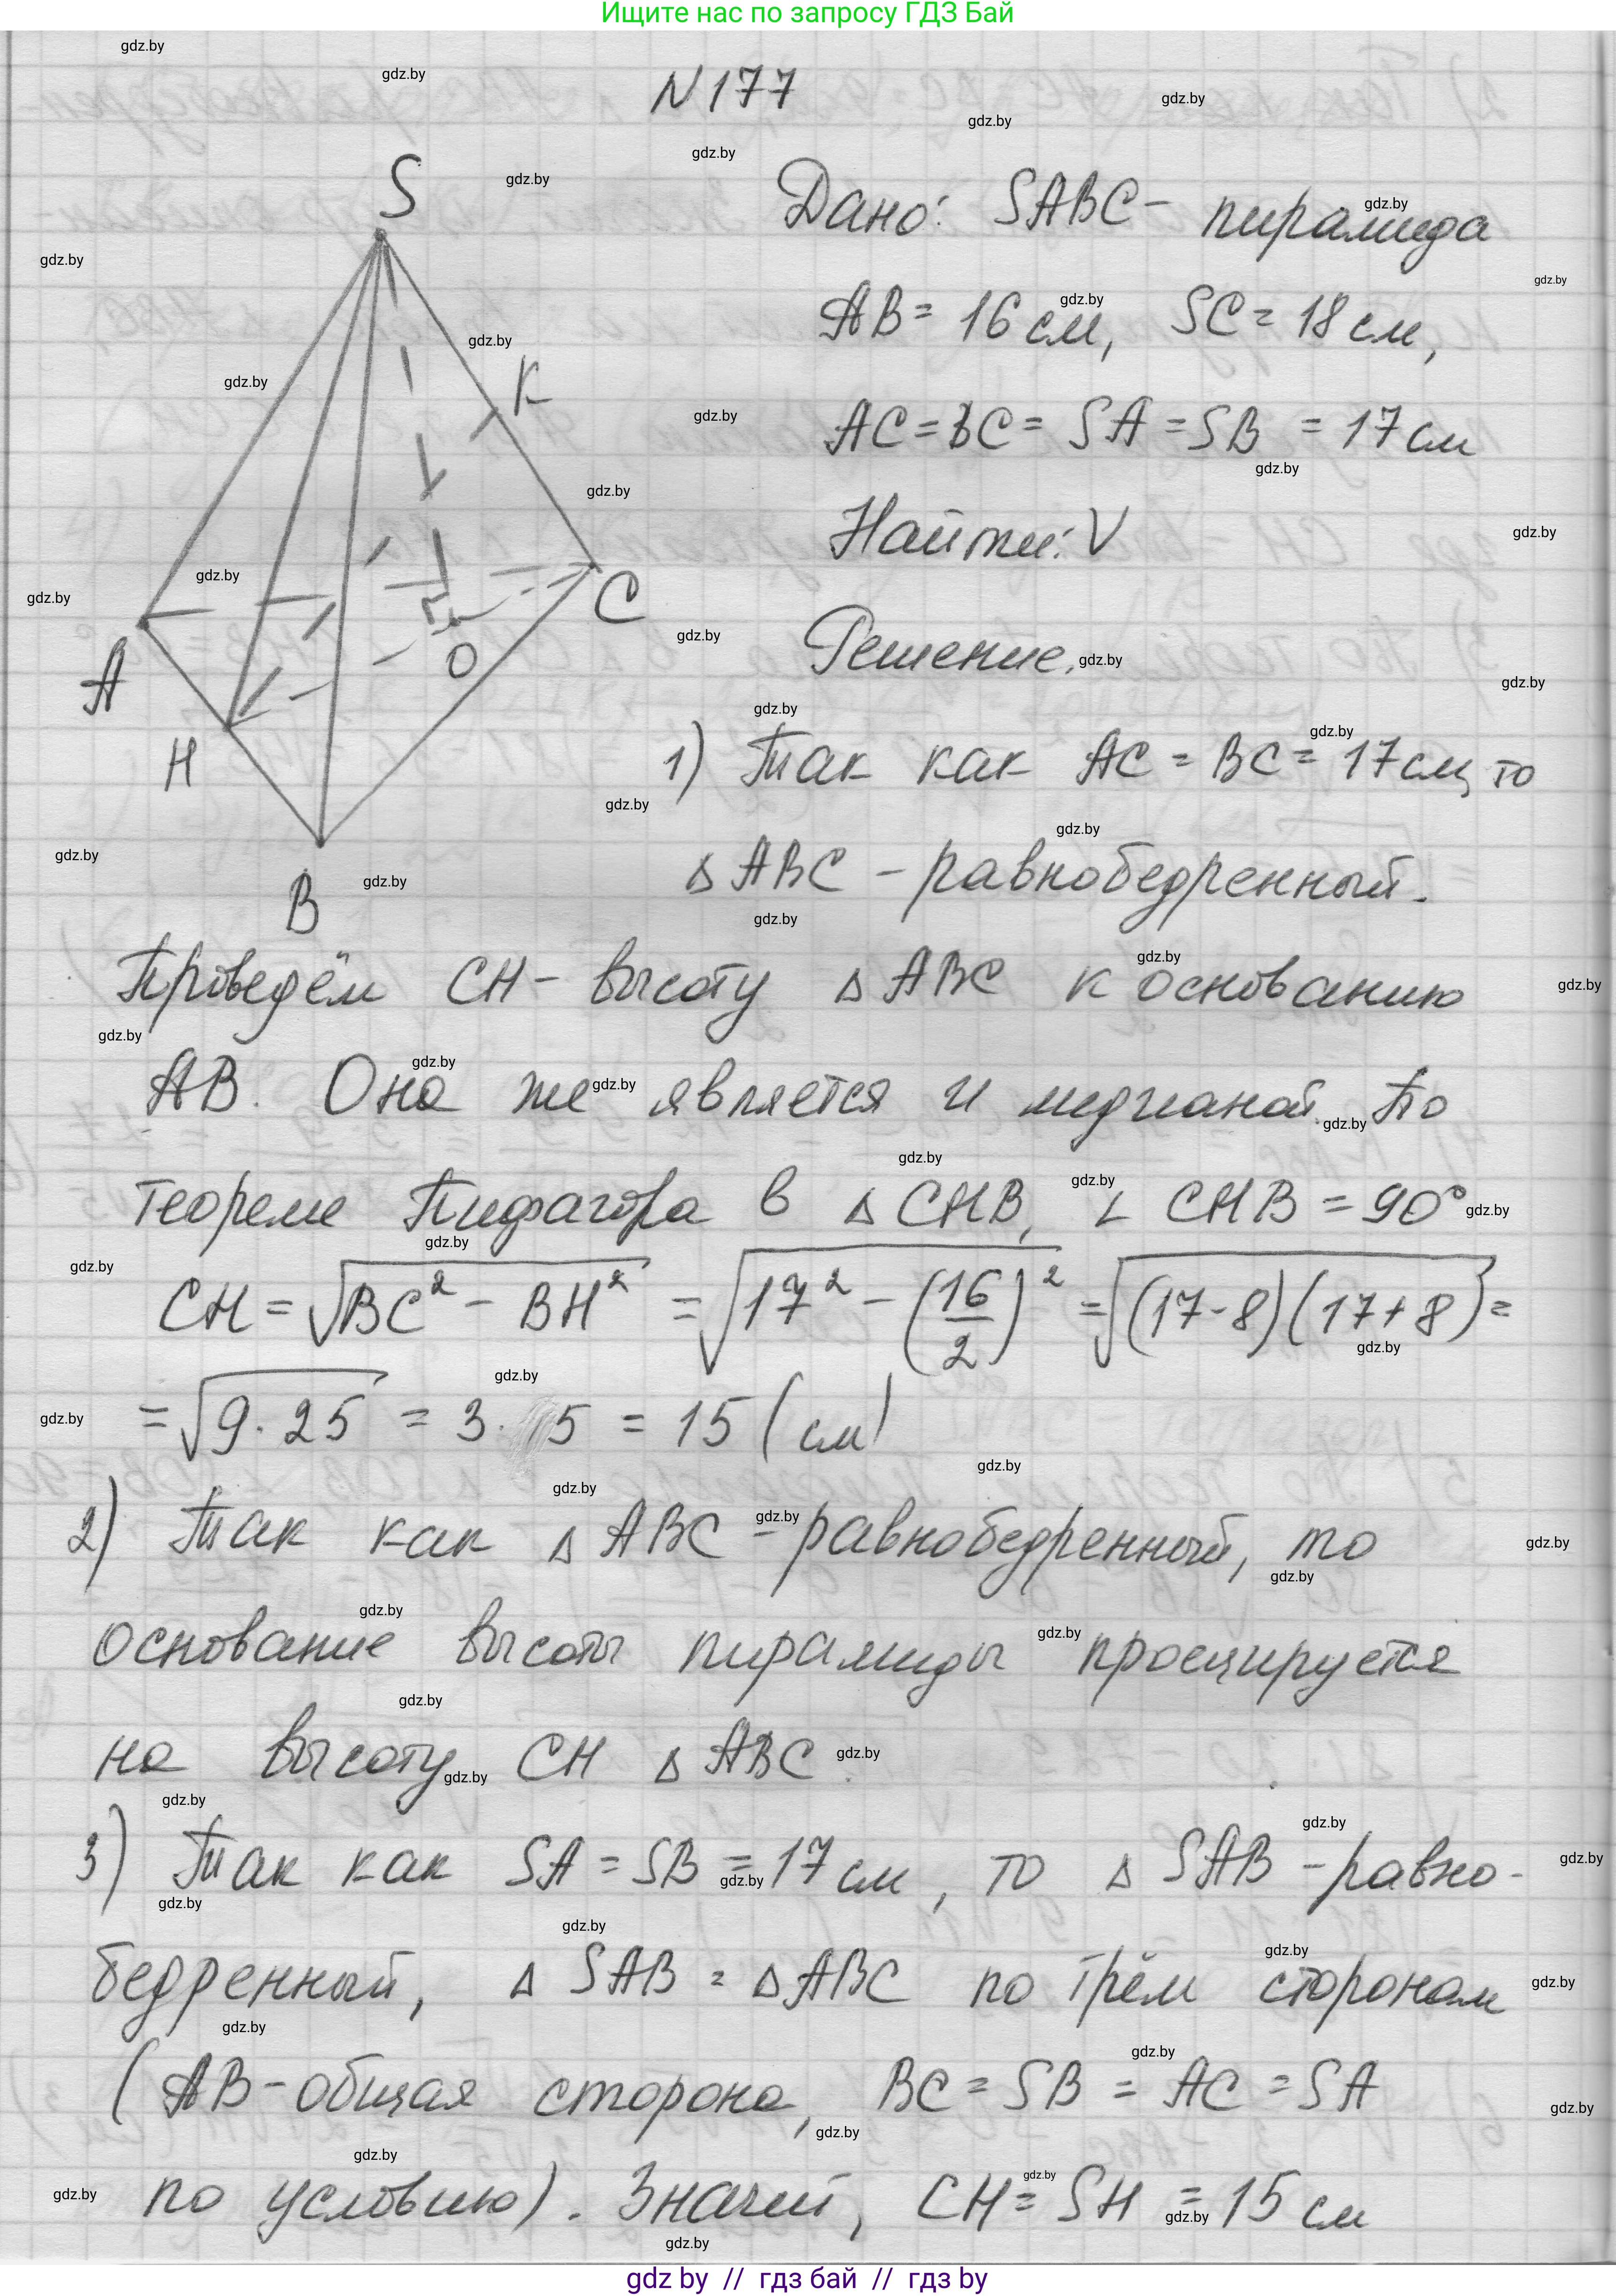 Ищите нас по запросу ГДЗ Бай
N 177
S
K
C
O
A
H
B
Дано: SABC - пирамида
AB = 16 см, SC = 18 см,
AC = BC = SA = SB = 17 см
Найти: V
Решение.
1) Так как AC = BC = 17 см, то
△ ABC - равнобедренный.
Проведём CH - высоту △ ABC к основанию
AB. Она же является и медианой. По
теореме Пифагора в △ CHB, ∠ CHB = 90°
CH = √(BC² - BH²) = √(17² - (16/2)²) = √((17-8)(17+8)) =
= √(9·25) = 3·5 = 15 (см)
2) Так как △ ABC - равнобедренный, то
основание высоты пирамиды проецируется
на высоту CH △ ABC.
3) Так как SA = SB = 17 см, то △ SAB - равно-
бедренный, △ SAB = △ ABC по трём сторонам
(AB - общая сторона, BC = SB = AC = SA
по условию). Значит, CH = SH = 15 см
gdz by // гдз бай // гдз by